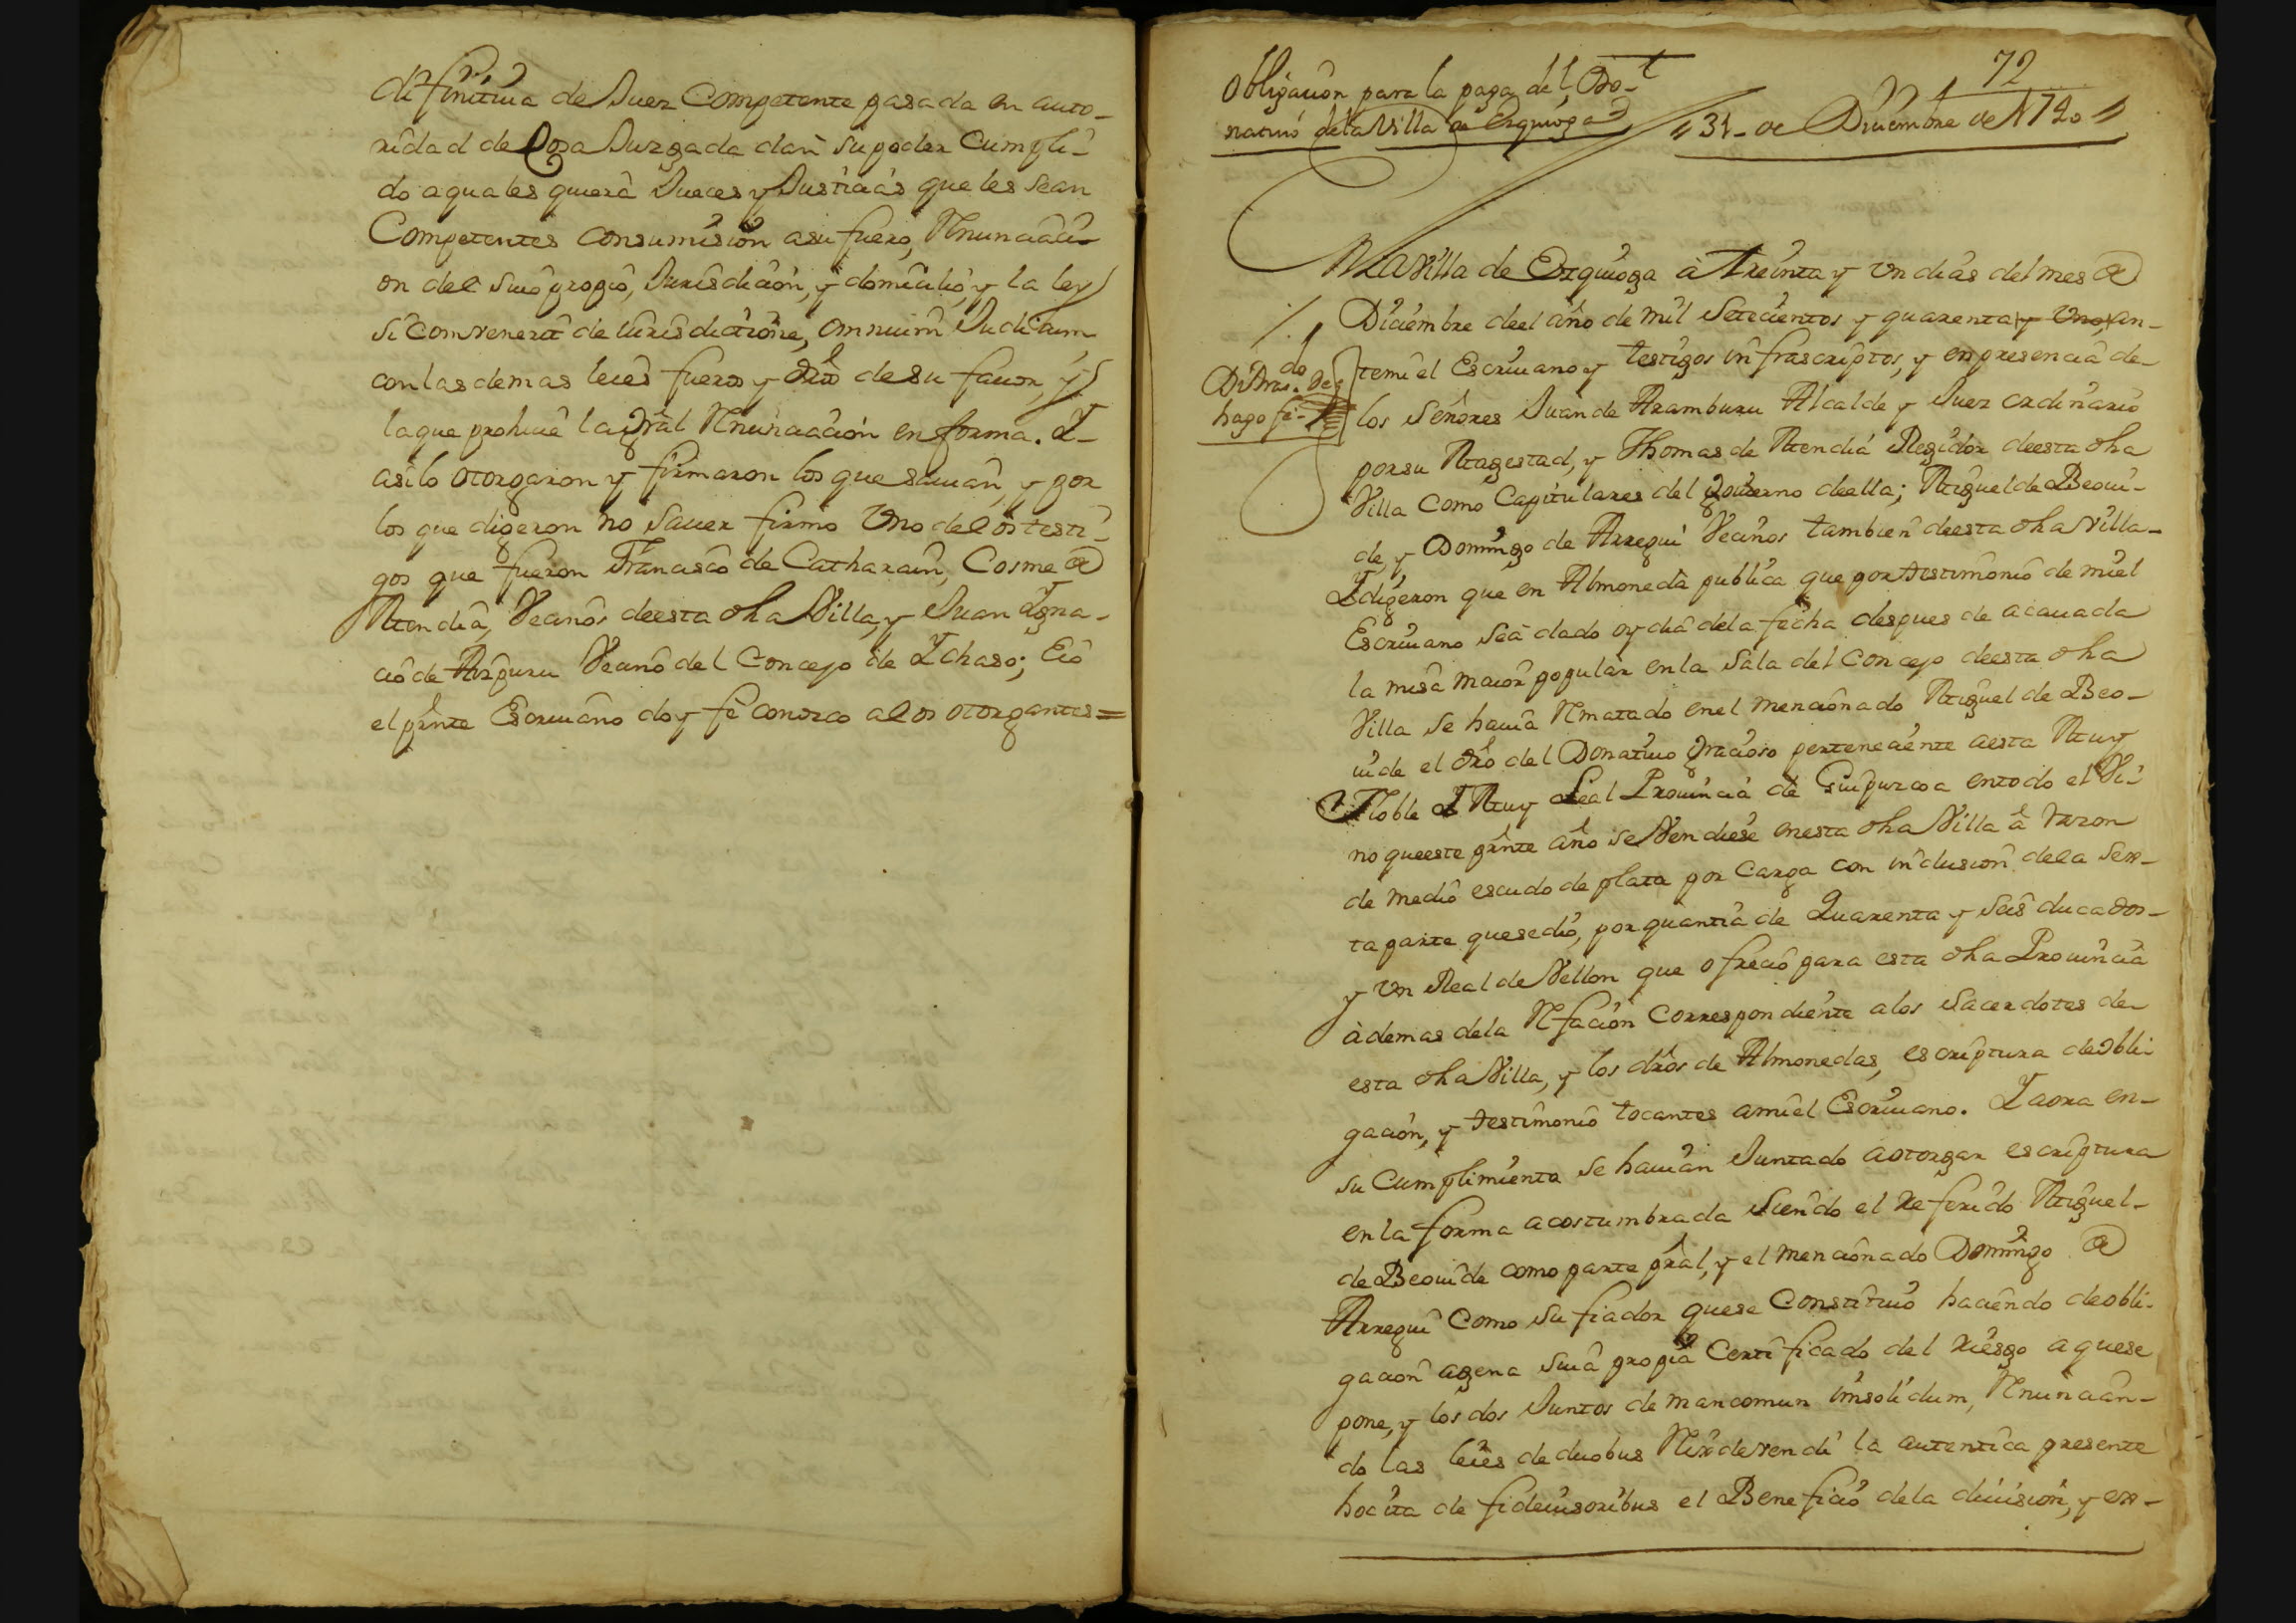 difinitiua de Juez Competente pasada en auto-
ridad de Cosa Juzgada dan su poder Cumpli-
do a quales quiera Jueces y Justicias que les sean
Competentes con sumision a su fuero, Renunciaci-
on del suio propio, Jurisdicion, y domicilio, y la ley
si combenerit de iurisdictione, omnium Judicum
con las demas leies fueros y dros de su fauor, y
la que prohiue la gral Renunciacion en forma. Y
asi lo otorgaron y firmaron los que sauian, y por
los que digeron no sauer firmo Vno de los testi-
gos que fueron Francisco de Catharain, Cosme de
Mendia, Vecinos de esta dha Villa, y Juan Igna-
cio de Arguru Vecino del Concejo de Ichaso; E io
el prnte Escriuano doy fe conozco a los otorgantes =
Obligacion para la paga del Do-
natiuo de la Villa de Ezquioga
72
31 de Diciembre de 1740
En la Villa de Ezquioga à treinta y Vn dias del mes de
Diciembre de el año de mil Setecientos y quarenta y Vno, an-
temi el Escriuano y testigos infrascriptos, y en presencia de
hago fe
los Señores Juan de Aramburu Alcalde y Juez ordinario
por su Magestad, y Thomas de Mendia Regidor de esta dha
Villa Como Capitulares del gouierno de ella; Miguel de Beoui-
de, y Domingo de Arregui Vecinos tambien de esta dha Villa
Y digeron que en Almoneda publica que por testimonio de mi el
Escriuano se à dado oy dia de la fecha despues de acauada
la misa maior popular en la Sala del Concejo de esta dha
Villa se hauia Rematado en el mencionado Miguel de Beo-
uide el dro del Donatiuo gracioso perteneciente a esta Muy
Noble Y Muy Leal Prouincia de Guipuzcoa en todo el Vi-
no que este prnte año se Vendiese en esta dha Villa à razon
de medio escudo de plata por Carga con inclusion de la Sex-
ta parte que se dio, por quantia de Quarenta y seis ducados
y Vn Real de Vellon que ofrecio para esta dha Prouincia
à demas de la Refacion Correspondiente a los Sacerdotes de
esta dha Villa, y los dros de Almonedas, escriptura de obli-
gacion, y testimonio tocantes a mi el Escriuano. Y aora en
su Cumplimiento se hauian Juntado a otorgar escriptura
en la forma acostumbrada Siendo el referido Miguel
de Beouide como parte pral, y el mencionado Domingo de
Arregui Como su fiador que se Constituio haciendo de obli-
gacion agena suia propia Certificado del riesgo a que se
pone, y los dos Juntos de mancomun insolidum, Renuncian-
do las leies de duobus Rex devendi la autentica presente
hoc ita de fideiusoribus el Beneficio de la diuision, y ex-